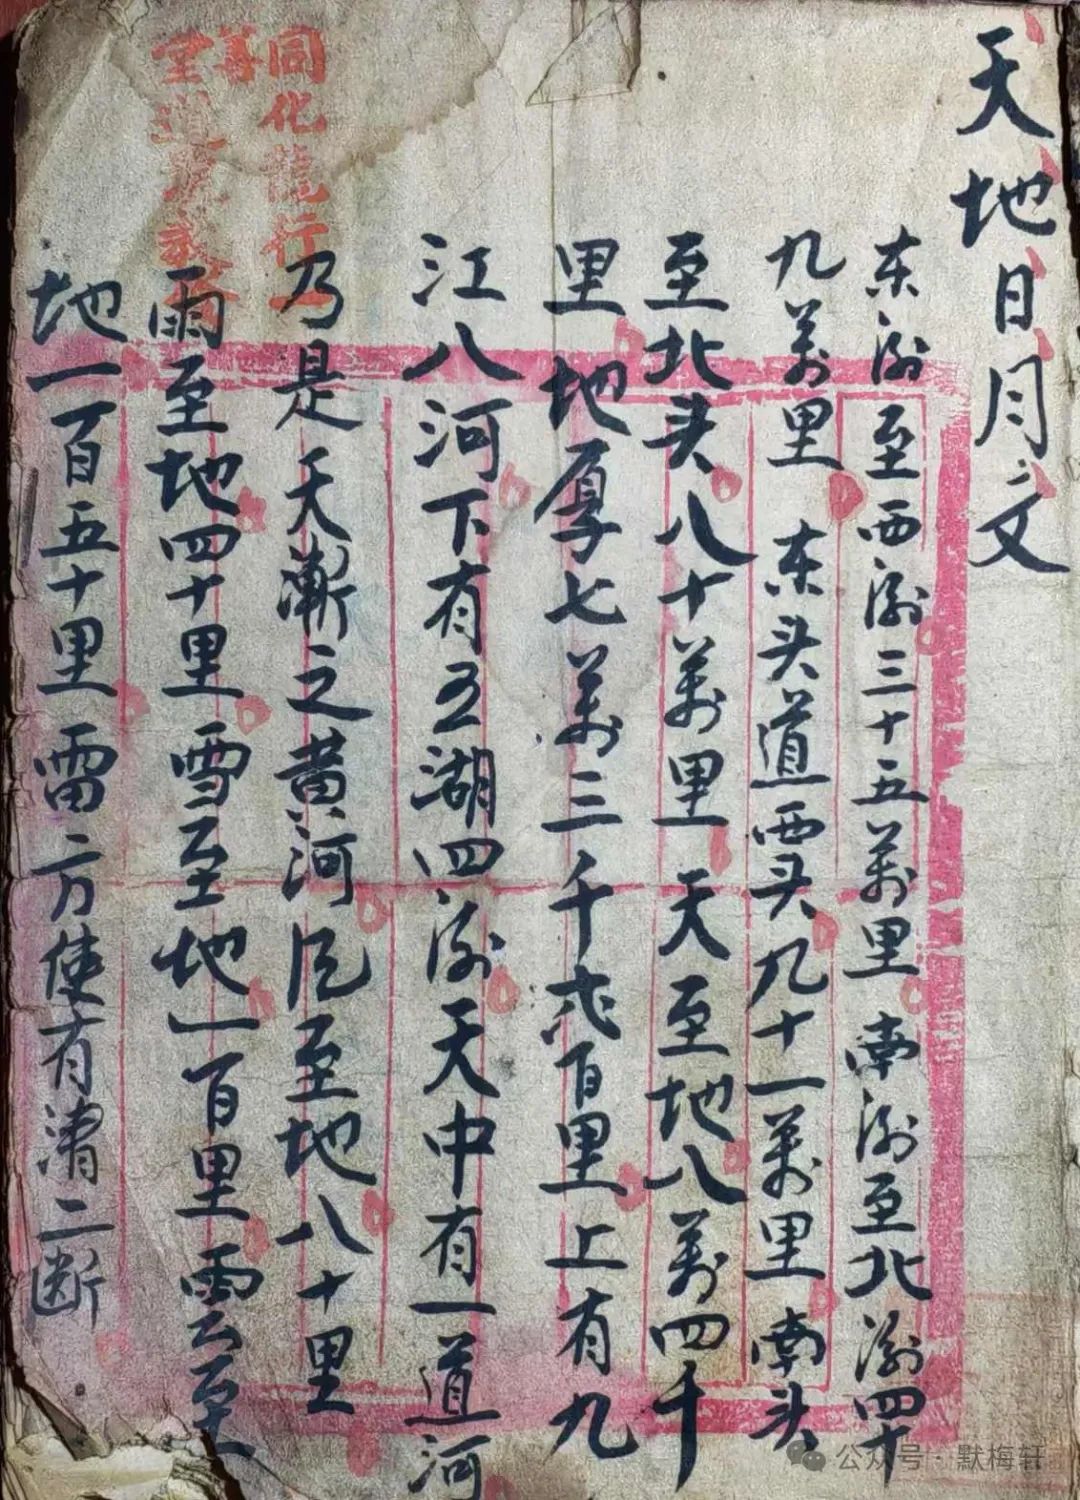 天地日月文
东 至西 三十五萬里 南 至北 四十
九萬里 东头道西头九十一萬里 南头
至北头八十萬里 天至地八萬四千
里 地厚七萬三千 百里上有九
江八河下有五湖四 天中有一道河
乃是天漸之黄河 风至地八十里
雨至地四十里雪至地一百里雲至
地一百五十里雷 方使有 二断
同化龍行
善
堂道
公众号·默梅轩